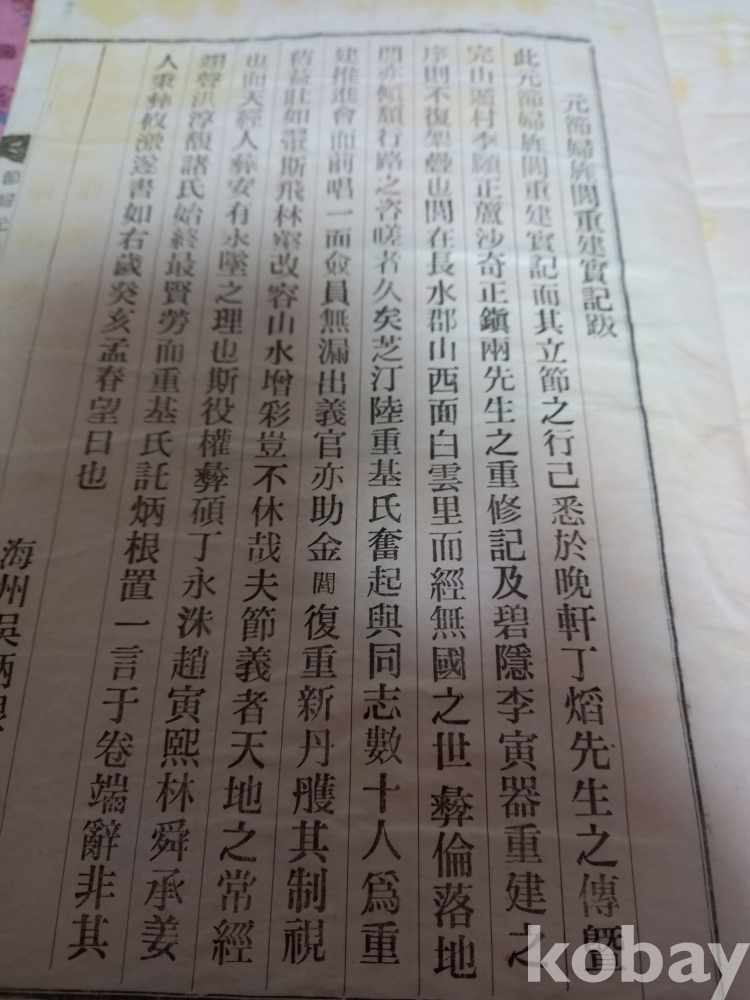 元節婦旌閭重建實記跋
此元節婦旌閭重建實記而其立節之行己悉於晚軒丁熖先生之傳曁
完山遯村李願正蘆沙奇正鎭兩先生之重修記及碧隱李寅器重建之
序則不復架疊也閭在長水郡山西面白雲里而經無國之世彛倫落地
閭亦傾頹行路之咨嗟者久矣芝汀陸重基氏奮起與同志數十人爲重
建推進會而前唱一面僉員無漏出義官亦助金閭復重新丹雘其制視
舊益壯如翬斯飛林巒改容山水增彩豈不休哉夫節義者天地之常經
也而天經人彛安有永墜之理也斯役權彛碩丁永洙趙寅熙林舜承姜
翊聲洪淳馥諸氏始終最賢勞而重基氏託炳根置一言于卷端辭非其
人秉彛攸激遂書如右歲癸亥孟春望日也
海州吳炳根
節婦元
kobay